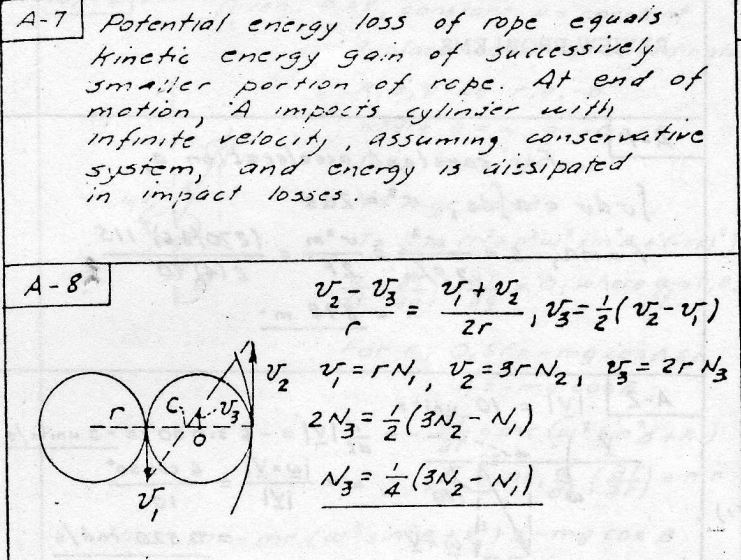 A-7
Potential energy loss of rope equals
kinetic energy gain of successively
smaller portion of rope. At end of
motion, A impacts cylinder with
infinite velocity, assuming conservative
system, and energy is dissipated
in impact losses.
A-8
(v₂ - v₃)/r = (v₁ + v₂)/2r , v₃ = ½(v₂ - v₁)
v₂ v₁ = rN₁, v₂ = 3rN₂, v₃ = 2rN₃
r C v₃ O
2N₃ = ½(3N₂ - N₁)
v₁
N₃ = ¼(3N₂ - N₁)